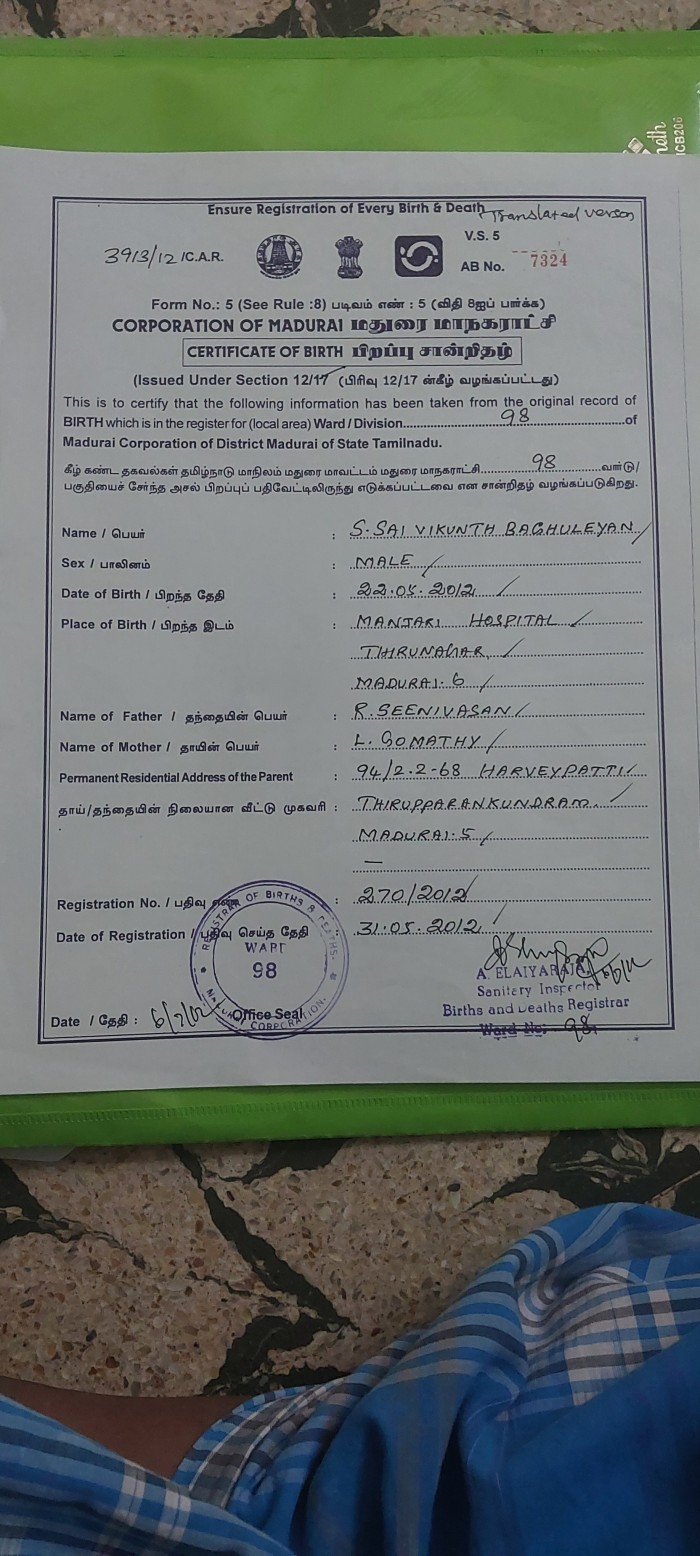 noth
ICB206
Ensure Registration of Every Birth & Death Translated version
3913/12 /C.A.R.
V.S. 5
AB No. 7324
Form No.: 5 (See Rule :8) படிவம் எண் : 5 (விதி 8ஐப் பார்க்க)
CORPORATION OF MADURAI மதுரை மாநகராட்சி
CERTIFICATE OF BIRTH பிறப்பு சான்றிதழ்
(Issued Under Section 12/17 (பிரிவு 12/17 ன்கீழ் வழங்கப்பட்டது)
This is to certify that the following information has been taken from the original record of
BIRTH which is in the register for (local area) Ward / Division 98 of
Madurai Corporation of District Madurai of State Tamilnadu.
கீழ் கண்ட தகவல்கள் தமிழ்நாடு மாநிலம் மதுரை மாவட்டம் மதுரை மாநகராட்சி 98 வார்டு/
பகுதியைச் சேர்ந்த அசல் பிறப்புப் பதிவேட்டிலிருந்து எடுக்கப்பட்டவை என சான்றிதழ் வழங்கப்படுகிறது.
Name / பெயர் : S. SAI VIKUNTH BAGHULEYAN
Sex / பாலினம் : MALE
Date of Birth / பிறந்த தேதி : 22.05.2012
Place of Birth / பிறந்த இடம் : MANJARI HOSPITAL
THIRUNAGAR,
MADURAI. 6
Name of Father / தந்தையின் பெயர் : R. SEENIVASAN
Name of Mother / தாயின் பெயர் : L. GOMATHY
Permanent Residential Address of the Parent : 94/2.2-68 HARVEYPATTI
தாய்/தந்தையின் நிலையான வீட்டு முகவரி : THIRUPPARANKUNDRAM.
MADURAI. 5
—
Registration No. / பதிவு எண் : 270/2012
Date of Registration / பதிவு செய்த தேதி : 31.05.2012
REGISTRAR OF BIRTHS & DEATHS.
WARD
98
MADURAI CORPORATION.
A. ELAIYARAJA,
Sanitary Inspector
Births and Deaths Registrar
Ward No: 98
Date / தேதி : 6/7/12
Office Seal